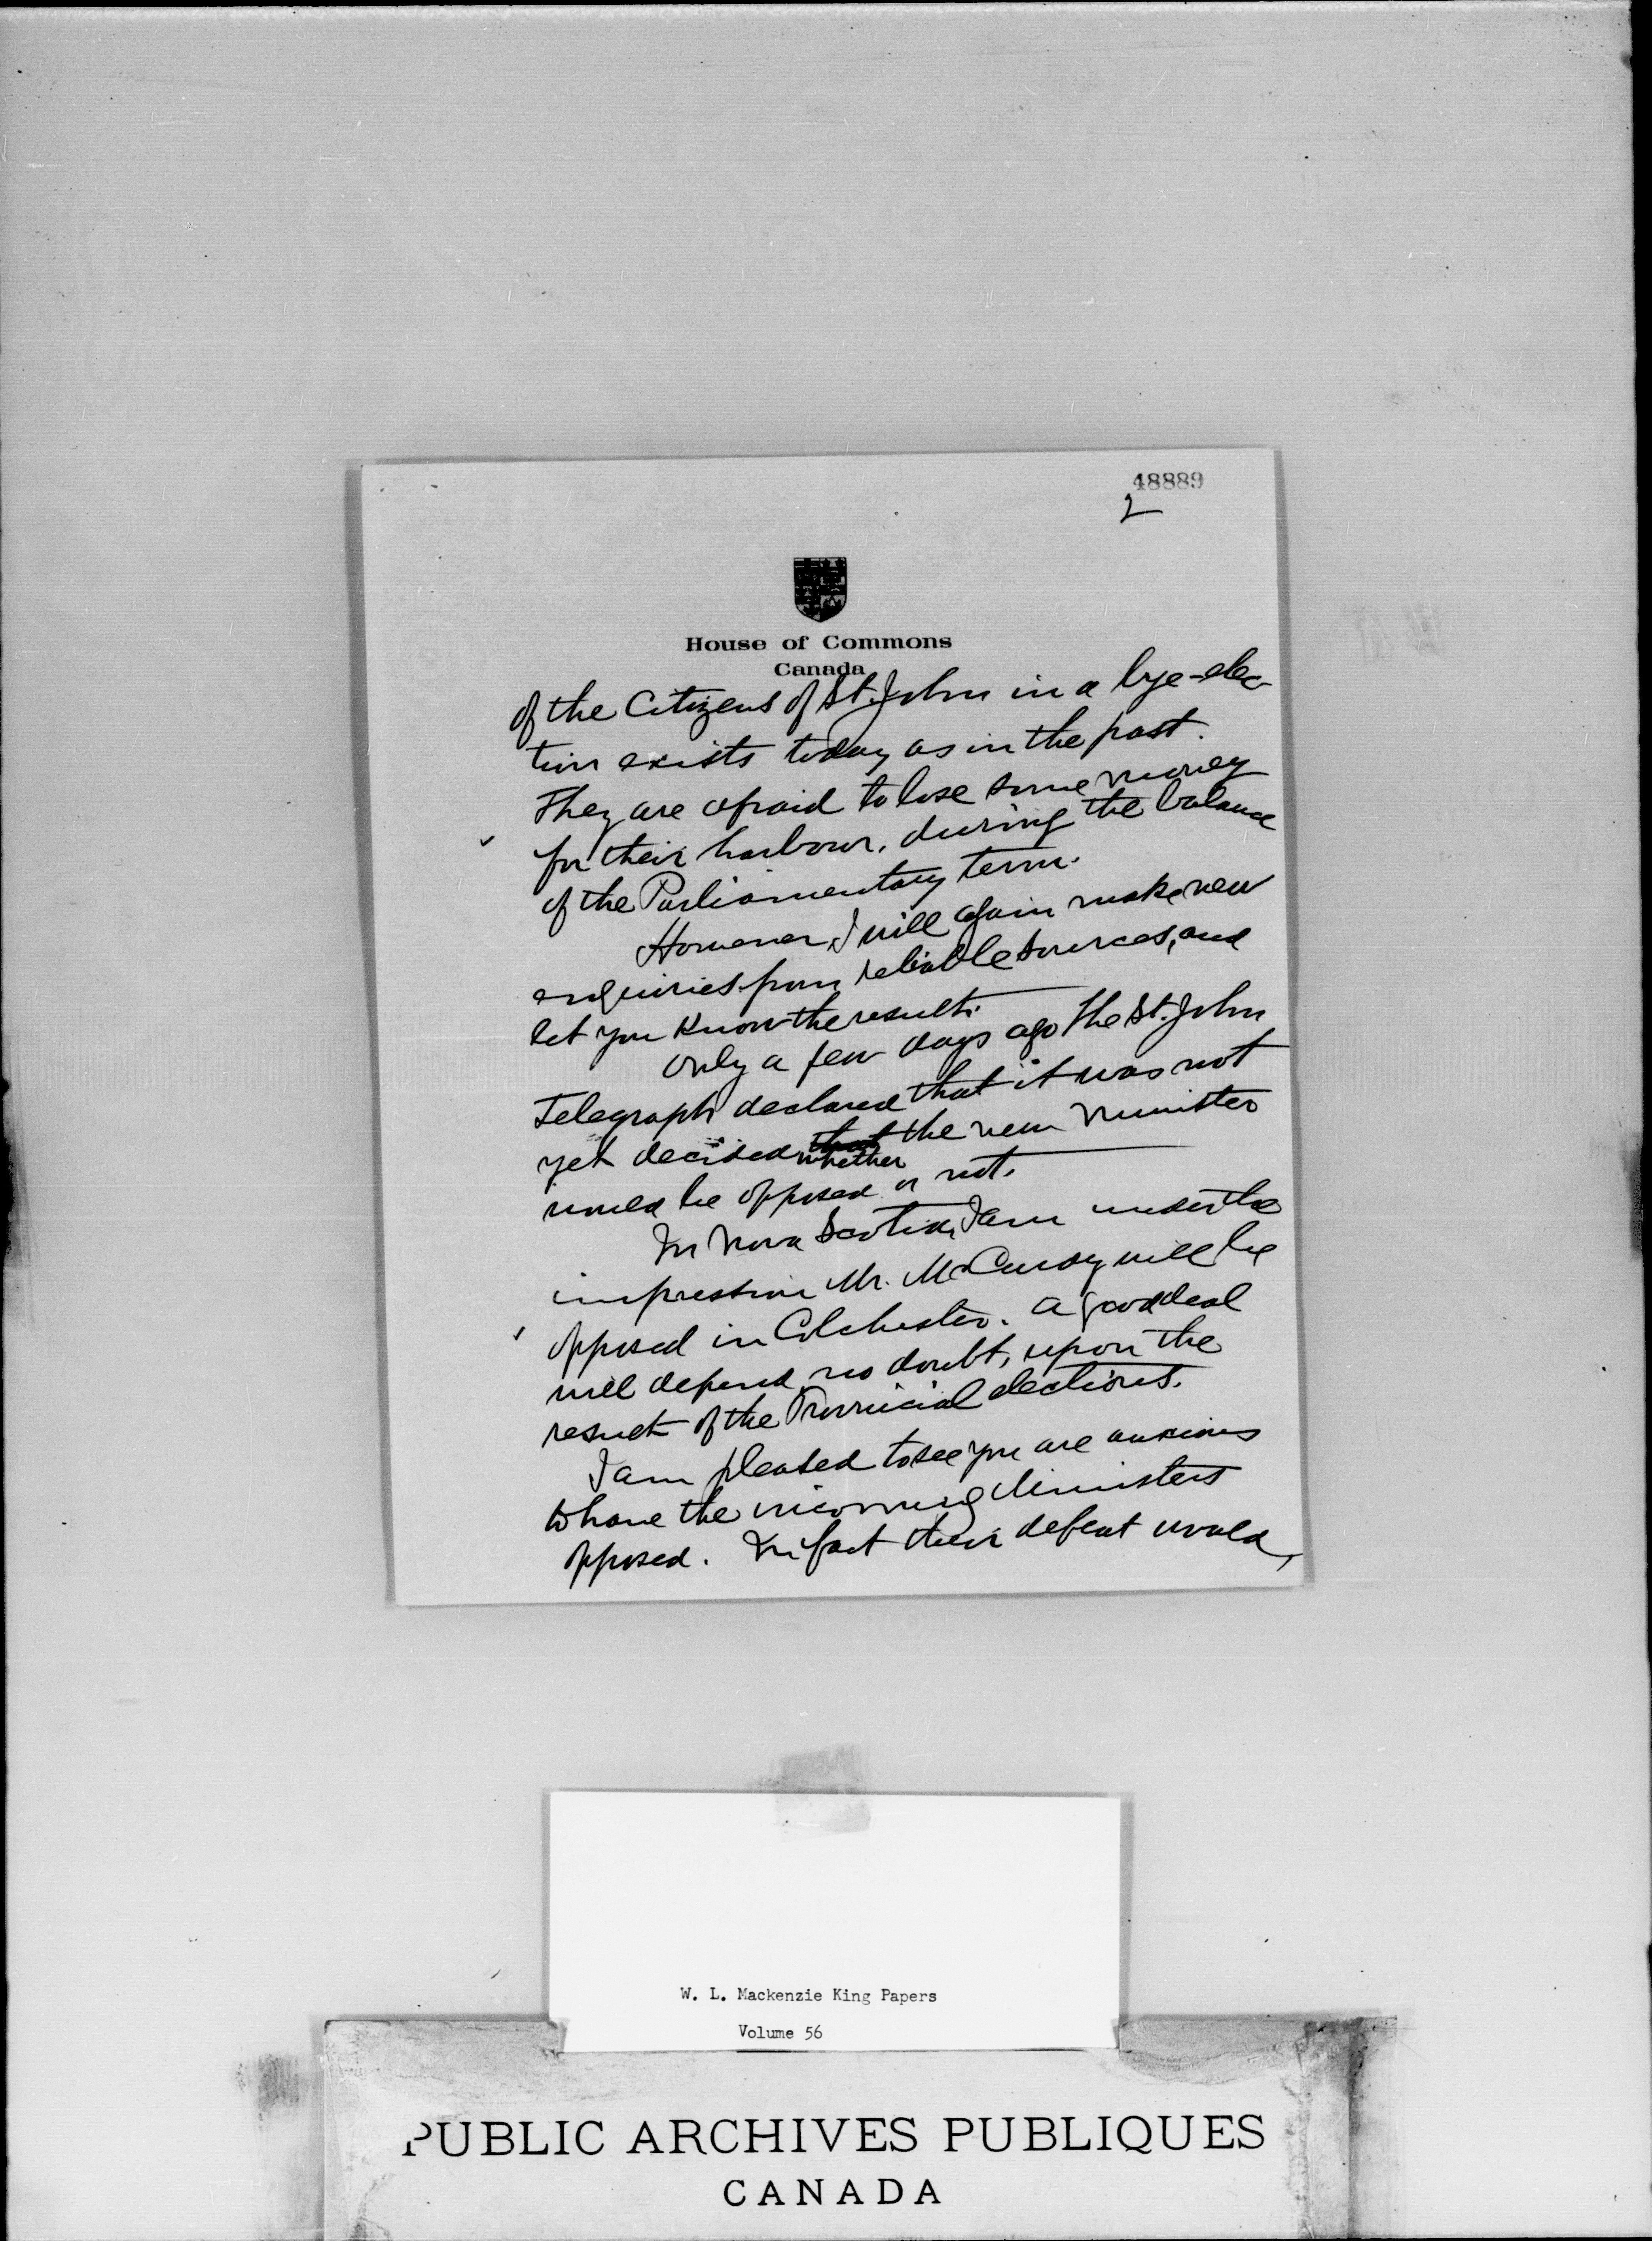 48889
2
House of Commons
Canada
of the Citizens of St. John in a bye-elec-
tion exists today as in the past.
They are afraid to lose some money
for their harbour, during the balance
of the Parliamentary term.
However, I will again make new
enquiries from reliable sources, and
let you know the result.
Only a few days ago the St. John
Telegraph declared that it was not
yet decided that whether the new Minister
would be opposed or not.
In Nova Scotia, I am under the
impression Mr. McCurdy will be
opposed in Colchester. A good deal
will depend, no doubt, upon the
result of the Provincial elections.
I am pleased to see you are anxious
to have the incoming Ministers
opposed. In fact their defeat would,
W. L. Mackenzie King Papers
Volume 56
PUBLIC ARCHIVES PUBLIQUES
CANADA